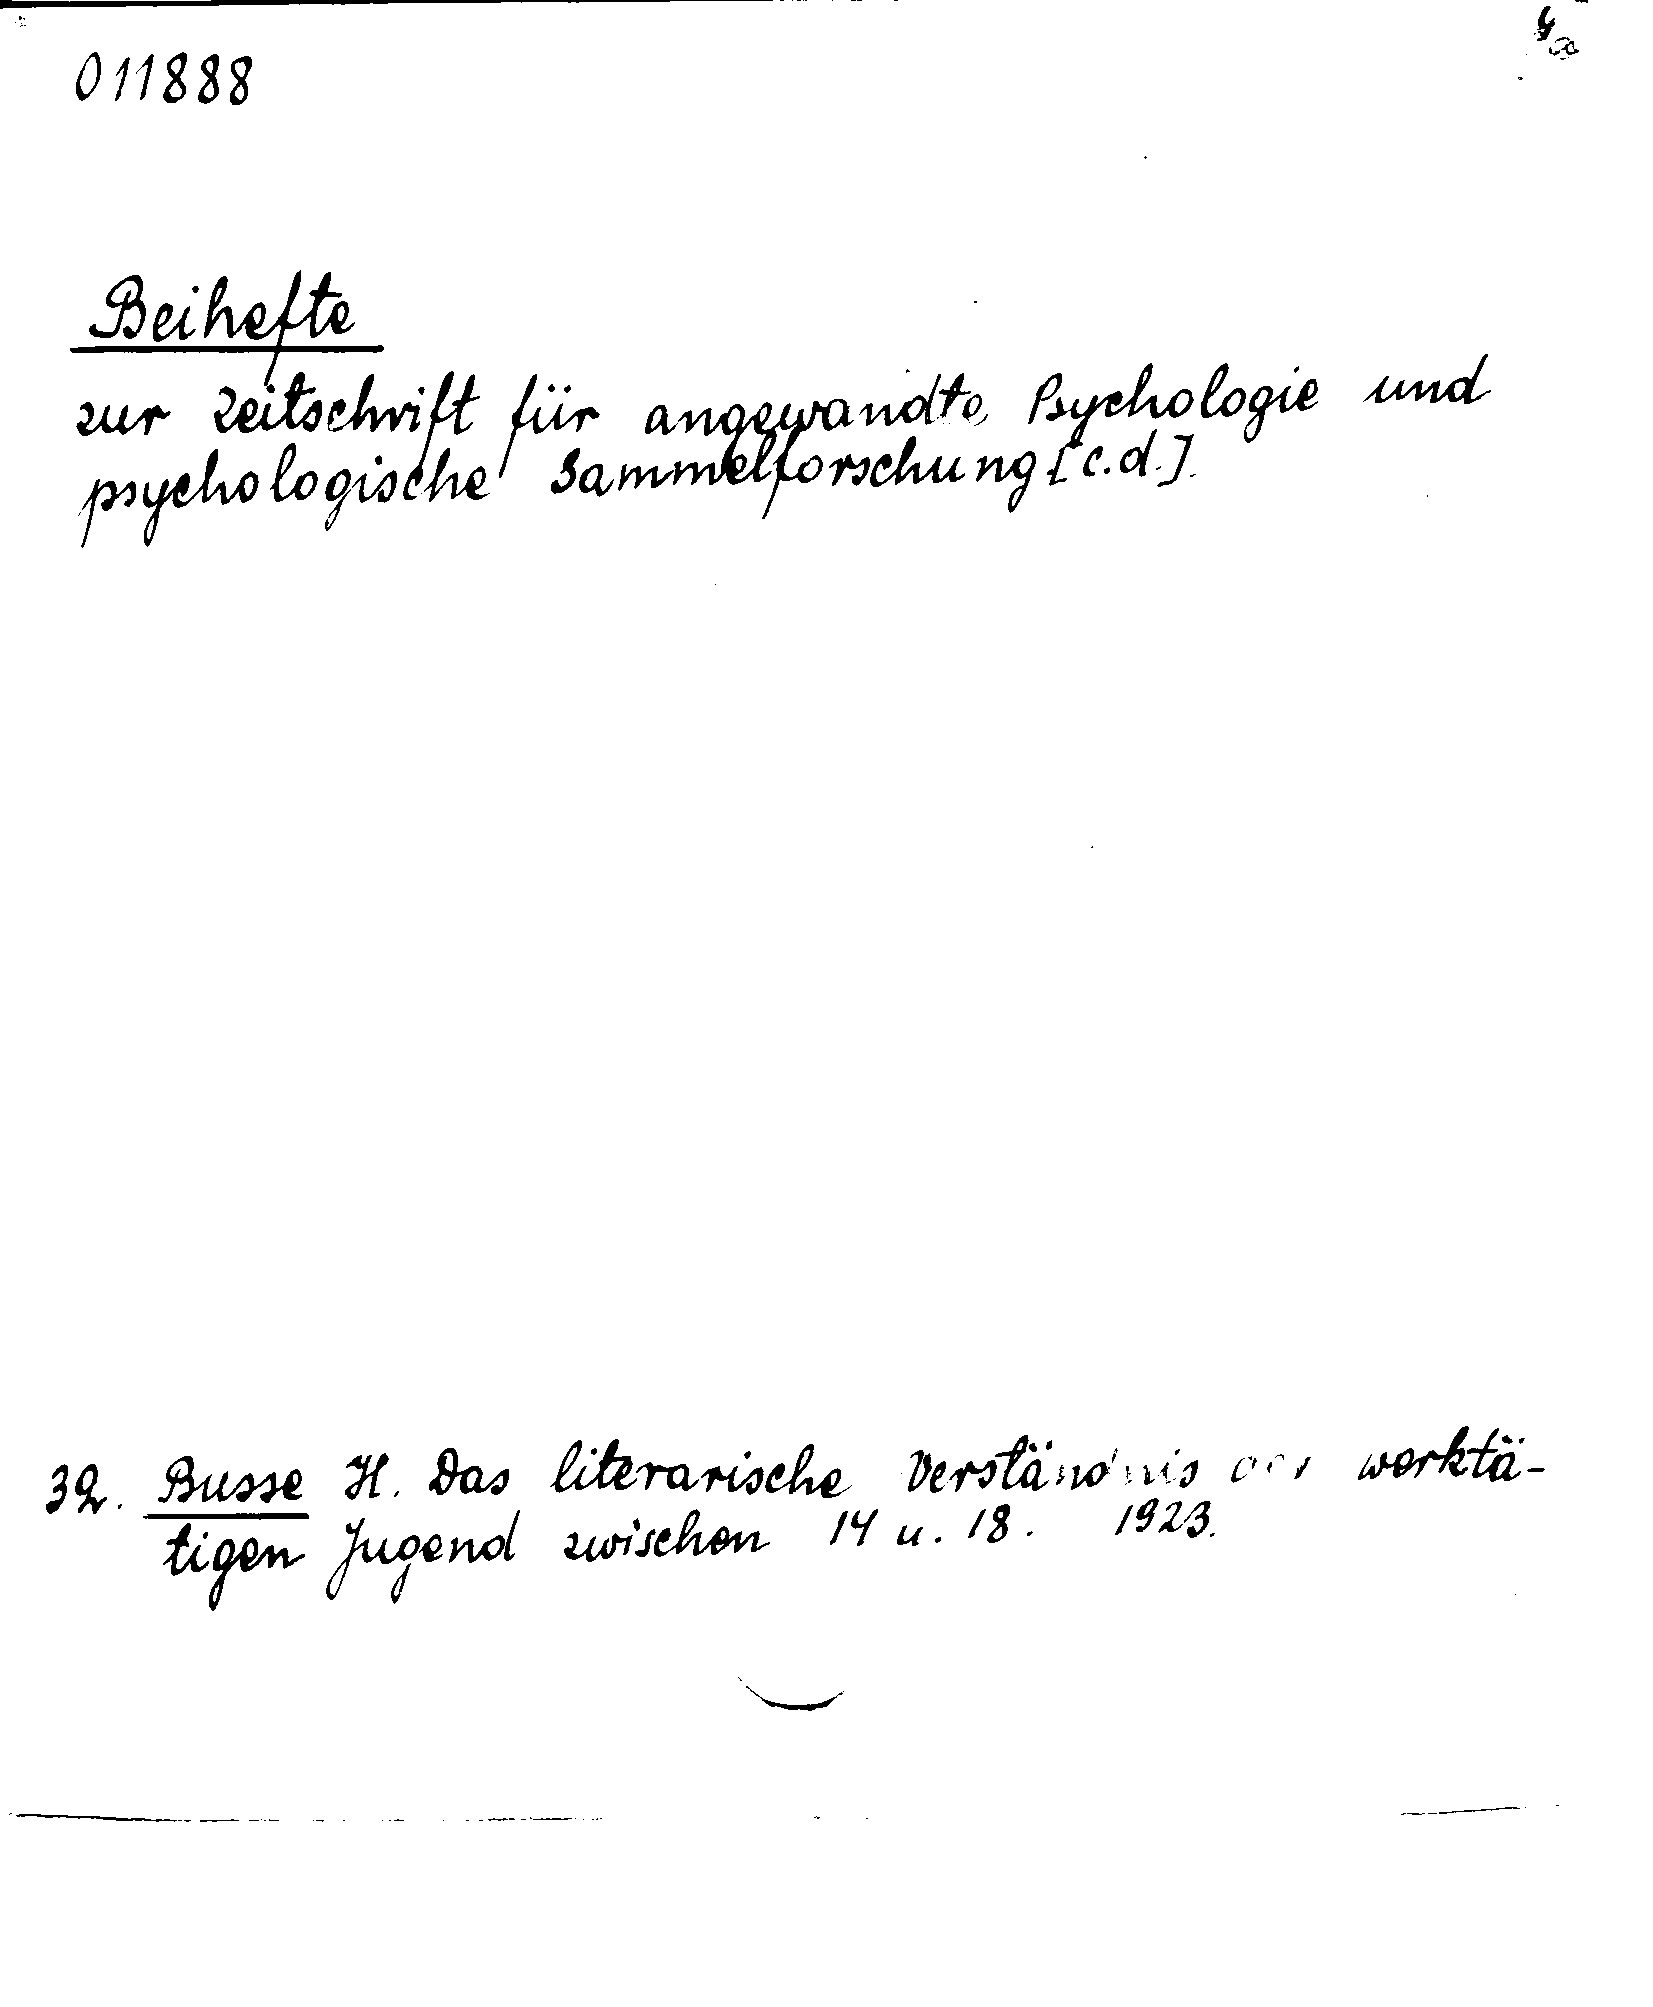 011888
Beihefte
zur Zeitschrift für angewandte Psychologie und
psychologische Sammelforschung [c.d.].
32. Busse H. Das literarische Verständnis der werktä-
tigen Jugend zwischen 14 u. 18. 1923.